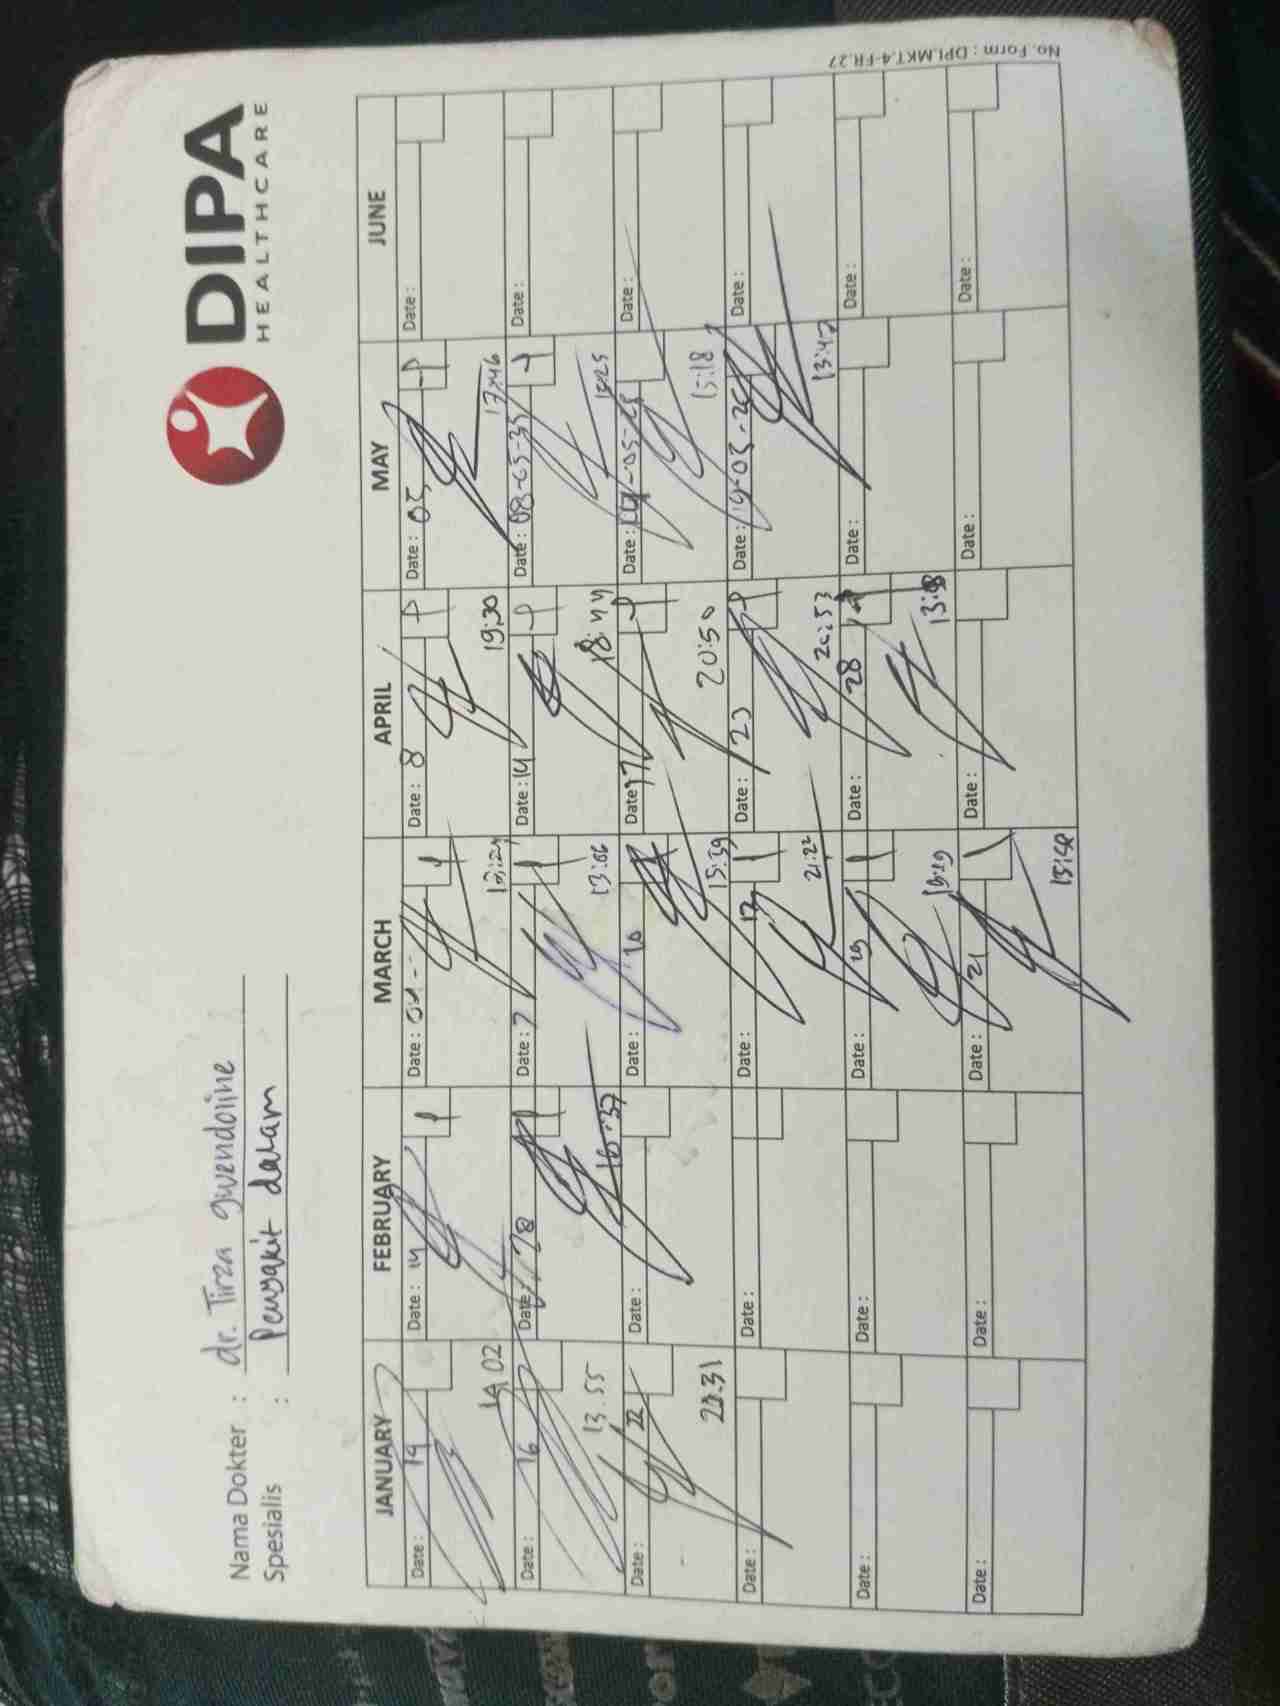 DIPA
HEALTHCARE
Nama Dokter : dr. Tirza gwendoline
Spesialis : Penyakit dalam
JANUARY FEBRUARY MARCH APRIL MAY JUNE
Date : 19 Date : 14 Date : 04 - Date : 8 Date : 05 Date :
19 02 19:30 17:46
Date : 16 Date : 28 Date : 7 Date : 14 Date : 08-05-25 Date :
13.55 16:37 13:06 18:44
Date : 22 Date : Date : 10 Date : 17 Date : Date :
20.31 15:39 20:50 15:18
Date : Date : Date : 13 Date : 23 Date : 19-05-25 Date :
21:22 20:53 13:42
Date : Date : Date : 19 Date : 28 Date : Date :
Date : Date : Date : 21 Date : Date : Date :
No. Form : DPI.MKT.4-FR.27